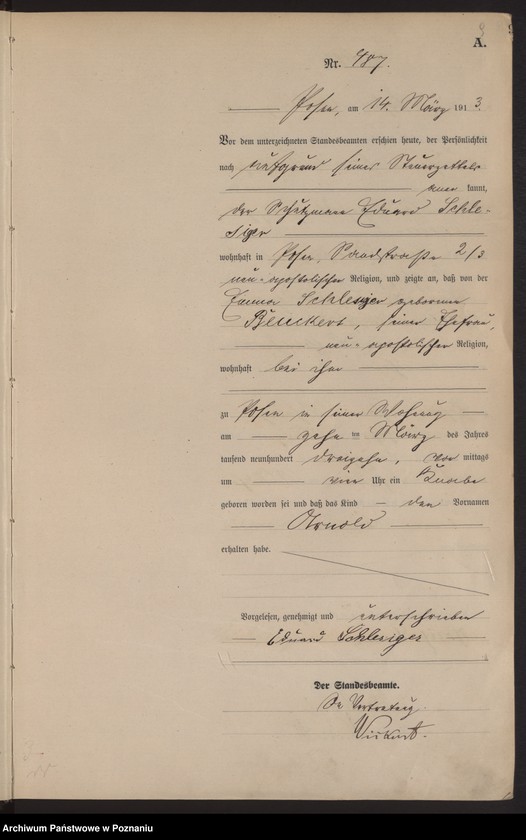 A.
Nr. 487.
Posen, am 14. März 1913.
Vor dem unterzeichneten Standesbeamten erschien heute, der Persönlichkeit
nach aufgrund seines Steuerzettels
kannt,
der Schutzmann Eduard Schle-
siger
wohnhaft in Posen, Sandstraße 2/3
neu-apostolischer Religion, und zeigte an, daß von der
Emma Schlesiger geborenen
seiner Ehefrau,
neu-apostolischer Religion,
wohnhaft bei ihm
zu Posen in seiner Wohnung
am zehn ten März des Jahres
tausend neunhundert dreizehn, vor mittags
um Uhr ein Knabe
geboren worden sei und daß das Kind den Vornamen
Arnold
erhalten habe.
Vorgelesen, genehmigt und unterschrieben
Eduard Schlesiger
Der Standesbeamte.
In Vertretung.
Archiwum Państwowe w Poznaniu